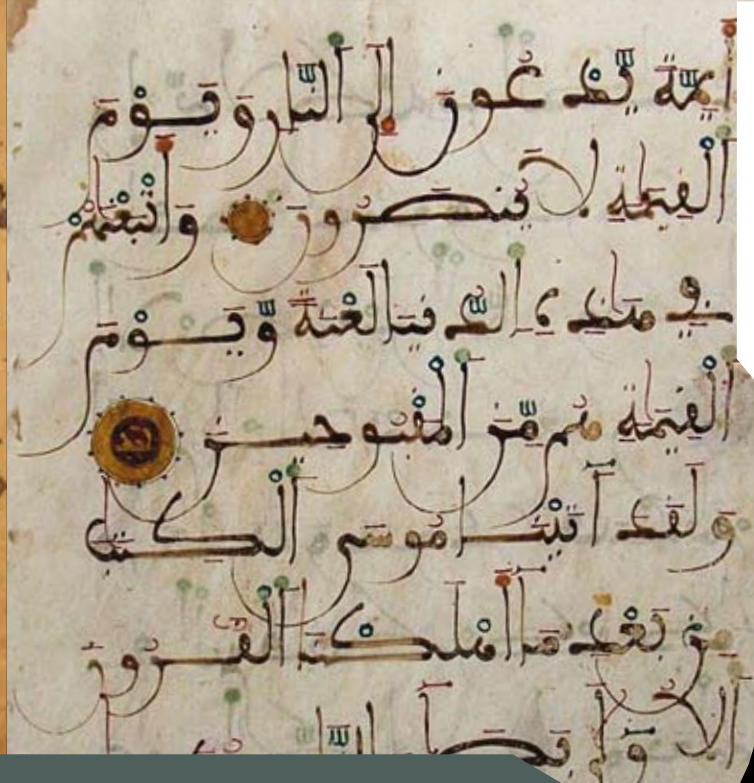 أَيِمَّةً يَدْعُونَ إِلَى النَّارِ وَيَوْمَ
الْقِيَٰمَةِ لَا يُنصَرُونَ وَأَتْبَعْنَٰهُمْ
فِي هَٰذِهِ الدُّنْيَا لَعْنَةً وَيَوْمَ
الْقِيَٰمَةِ هُم مِّنَ الْمَقْبُوحِينَ
وَلَقَدْ ءَاتَيْنَا مُوسَى الْكِتَٰبَ
مِنۢ بَعْدِ مَا أَهْلَكْنَا الْقُرُونَ
الْأُولَىٰ